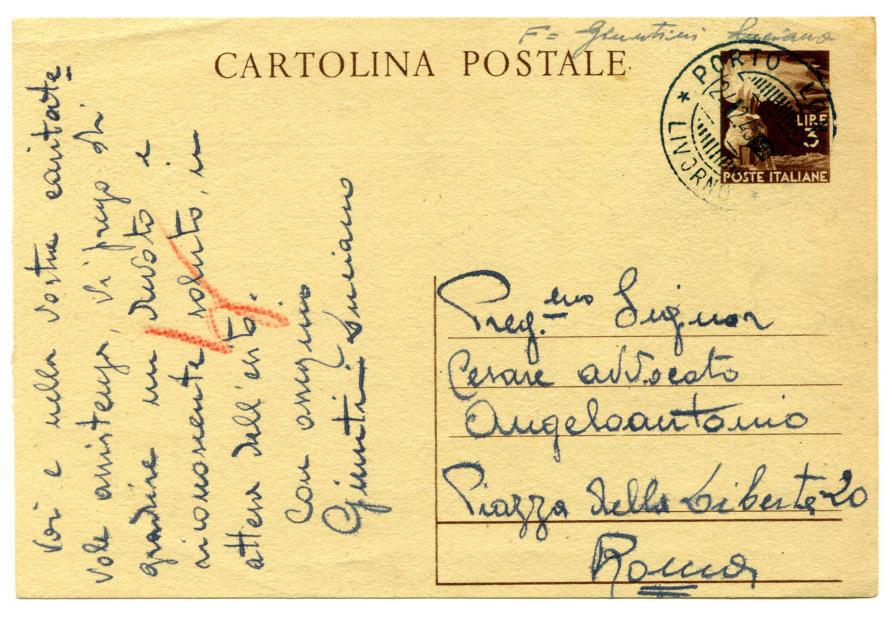 F = Giuntini Luciano
CARTOLINA POSTALE
* PORTO
LIVORNO *
LIRE
3
POSTE ITALIANE
Voi e nella vostra caritate=
vole assistenza, Vi prego di
gradire un devoto e
riconoscente saluto, in
attesa dell'esito.
Con ossequio
Giuntini Luciano
Preg.mo Signor
Cesare avvocato
Angeloantonio
Piazza della Libertà 20
Roma